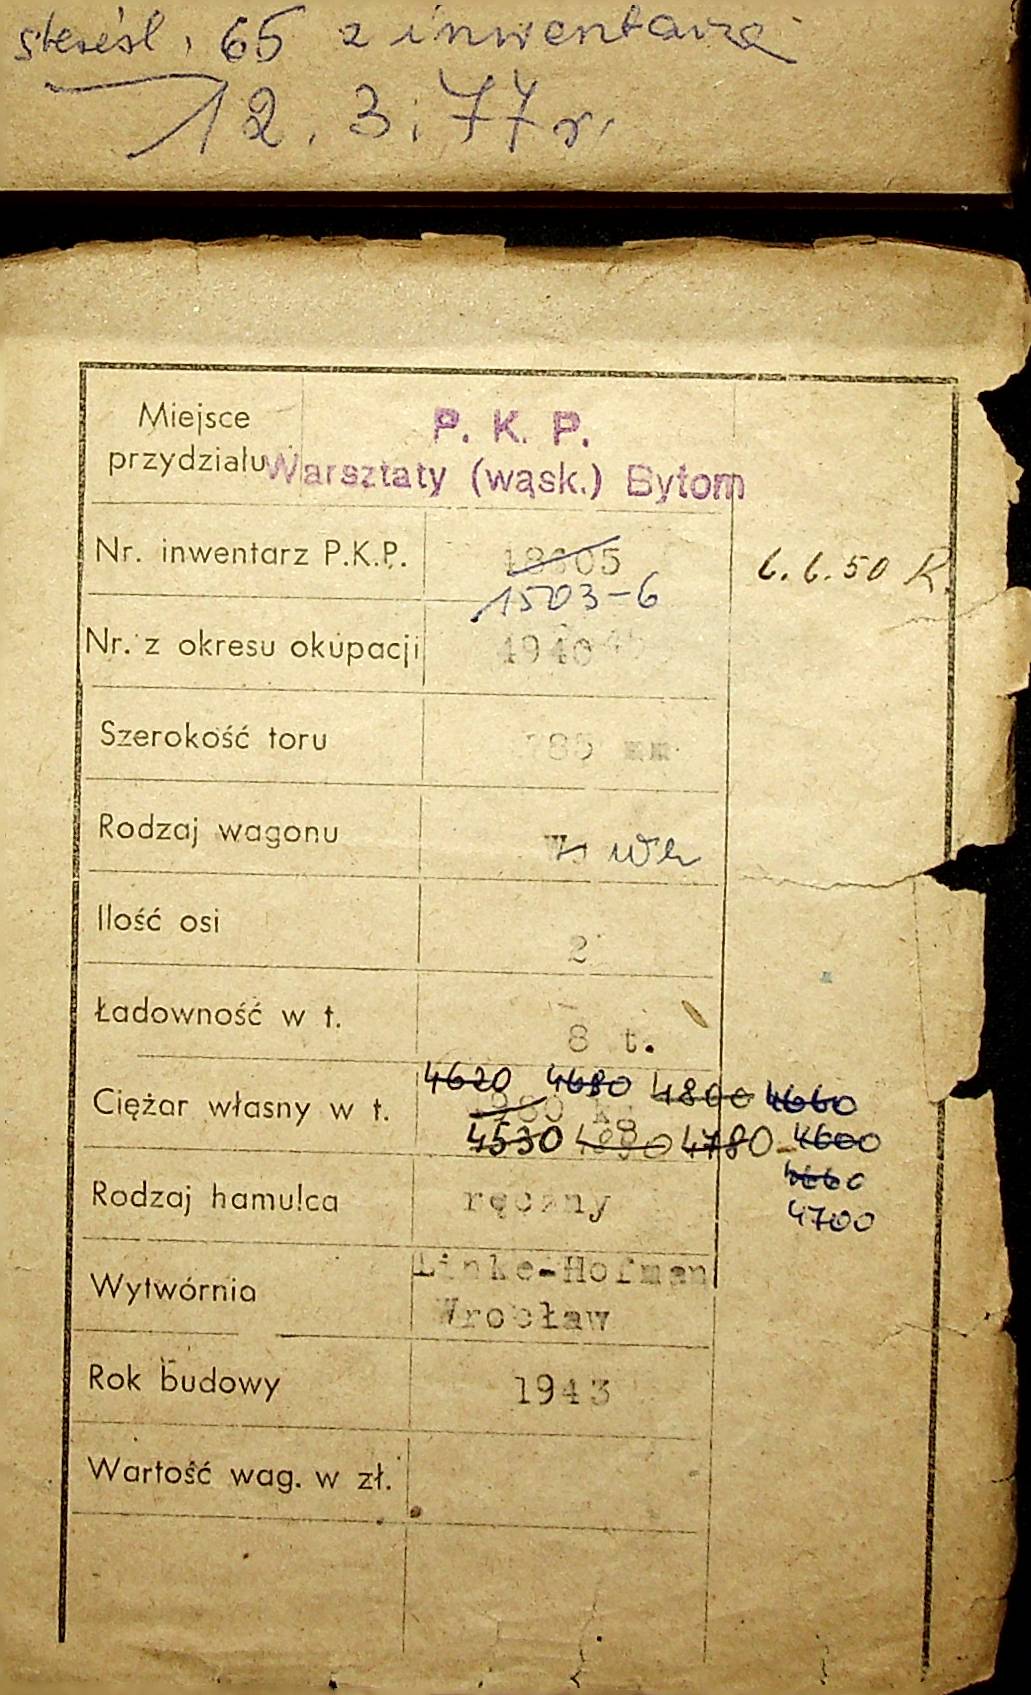 65 z inwentarza
12. 3. 77 r.
Miejsce przydziału
P. K. P.
Warsztaty (wąsk.) Bytom
Nr. inwentarz P.K.P.
1503-6
6.6.50 R.
Nr. z okresu okupacji
4940
Szerokość toru
785 mm
Rodzaj wagonu
Ilość osi
2
Ładowność w t.
8 t.
4620 4680 4800 4660
Ciężar własny w t.
kg
4530 4780 4600
4660
4700
Rodzaj hamulca
ręczny
Wytwórnia
Linke-Hofman
Wrocław
Rok budowy
1943
Wartość wag. w zł.